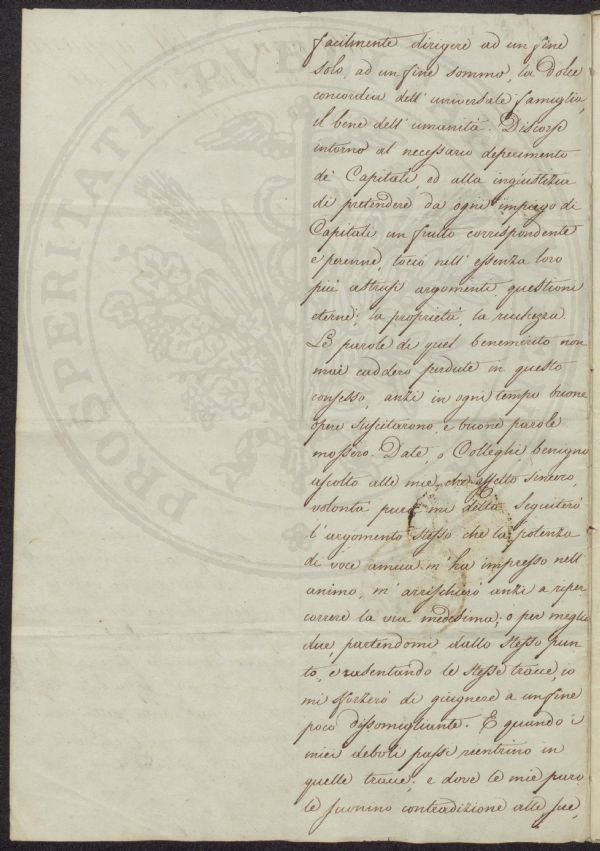 facilmente dirigere ad un fine
solo, ad un fine sommo, la dolce
concordia dell'universale famiglia,
il bene dell'umanità. Discorse
intorno al necessario deperimento
dei Capitali, ed alla ingiustizia
di pretendere da ogni impiego di
Capitali un frutto corrispondente
e perenne, toccò nell'essenza loro
più astrusi argomenti, questioni
eterne; la proprietà, la ricchezza
Le parole di quel benemerito non
mai caddero perdute in questo
consesso, anzi in ogni tempo buone
opere suscitarono, e buone parole
mossero. Date, o Colleghi benigno
ascolto alle mie, che affetto sincero,
volontà pura mi detta. Seguiterò
l'argomento stesso che la potenza
di voce amica m'ha impresso nell'
animo, m'arrischierò anzi a riper
correre la via medesima; o per meglio
dire, partendomi dallo stesso pun
to, e rasentando le stesse tracce, io
mi sforzerò di giugnere a un fine
poco dissomigliante. E quando i
miei deboli passi rientrino in
quelle tracce; e dove le mie paro
le suonino contradizione alle sue,
PROSPERITATI PVB